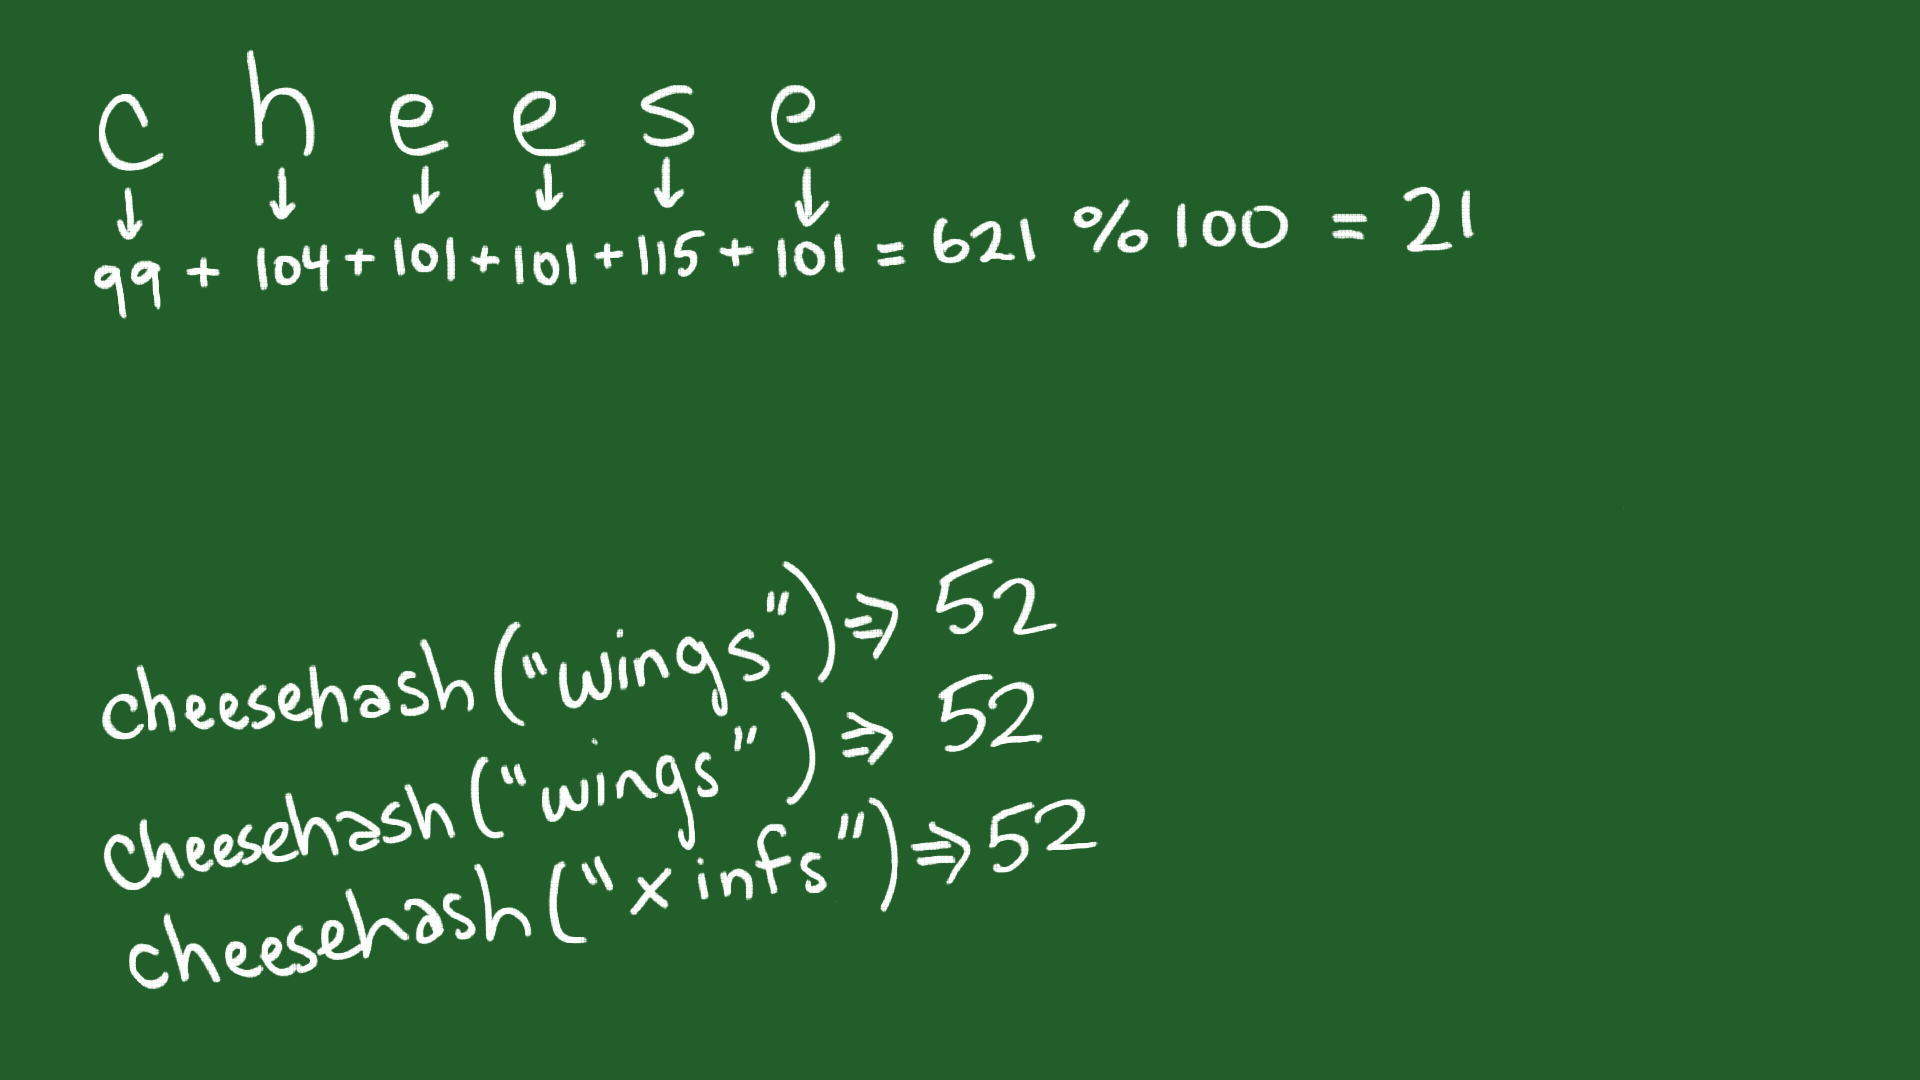 c h e e s e
↓ ↓ ↓ ↓ ↓ ↓
99 + 104 + 101 + 101 + 115 + 101 = 621 % 100 = 21
cheesehash("wings") => 52
cheesehash("wings") => 52
cheesehash("xinfs") => 52